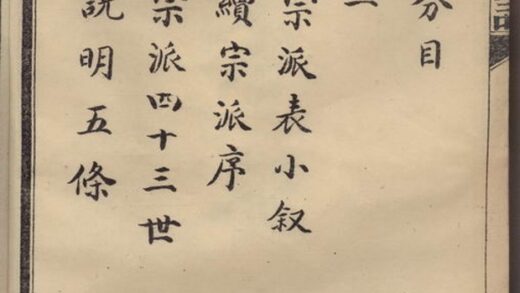 分目
宗派表小叙
續宗派序
宗派四十三世
說明五條